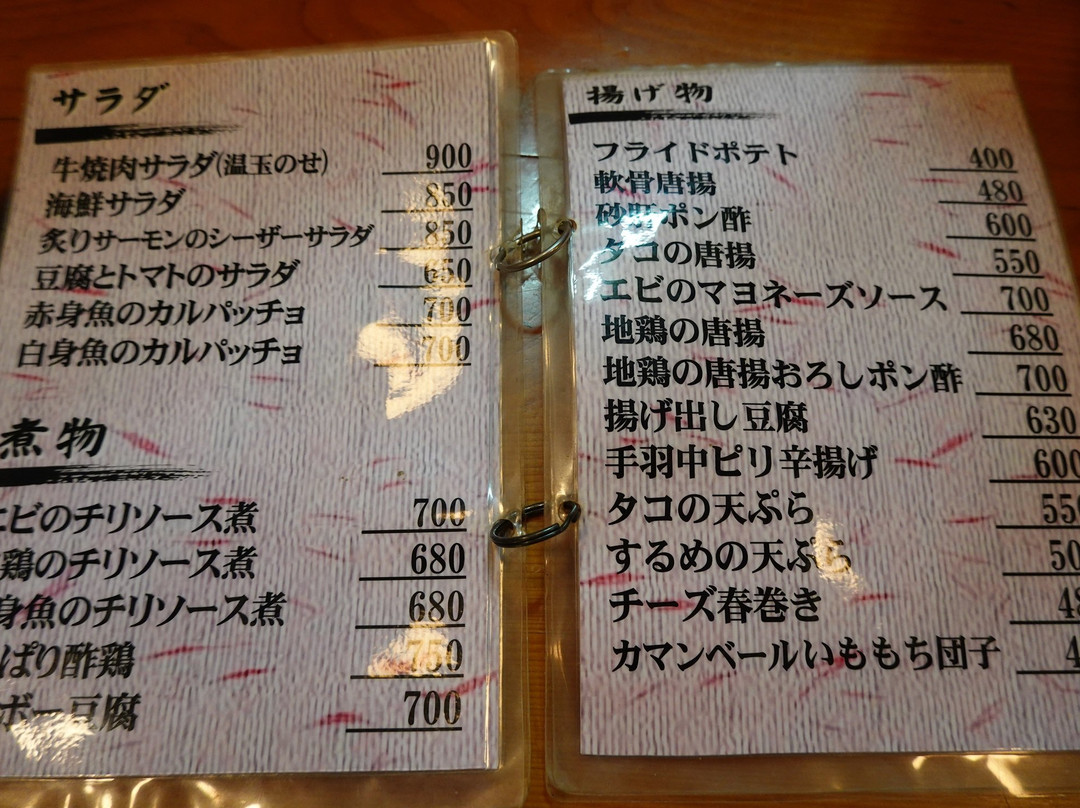 サラダ
牛焼肉サラダ(温玉のせ) 900
海鮮サラダ 850
炙りサーモンのシーザーサラダ 850
豆腐とトマトのサラダ 650
赤身魚のカルパッチョ 700
白身魚のカルパッチョ 700
煮物
エビのチリソース煮 700
鶏のチリソース煮 680
身魚のチリソース煮 680
ぱり酢鶏 750
ボー豆腐 700
揚げ物
フライドポテト 400
軟骨唐揚 480
砂肝ポン酢 600
タコの唐揚 550
エビのマヨネーズソース 700
地鶏の唐揚 680
地鶏の唐揚おろしポン酢 700
揚げ出し豆腐 630
手羽中ピリ辛揚げ 600
タコの天ぷら 550
するめの天ぷら 50
チーズ春巻き 48
カマンベールいももち団子 4